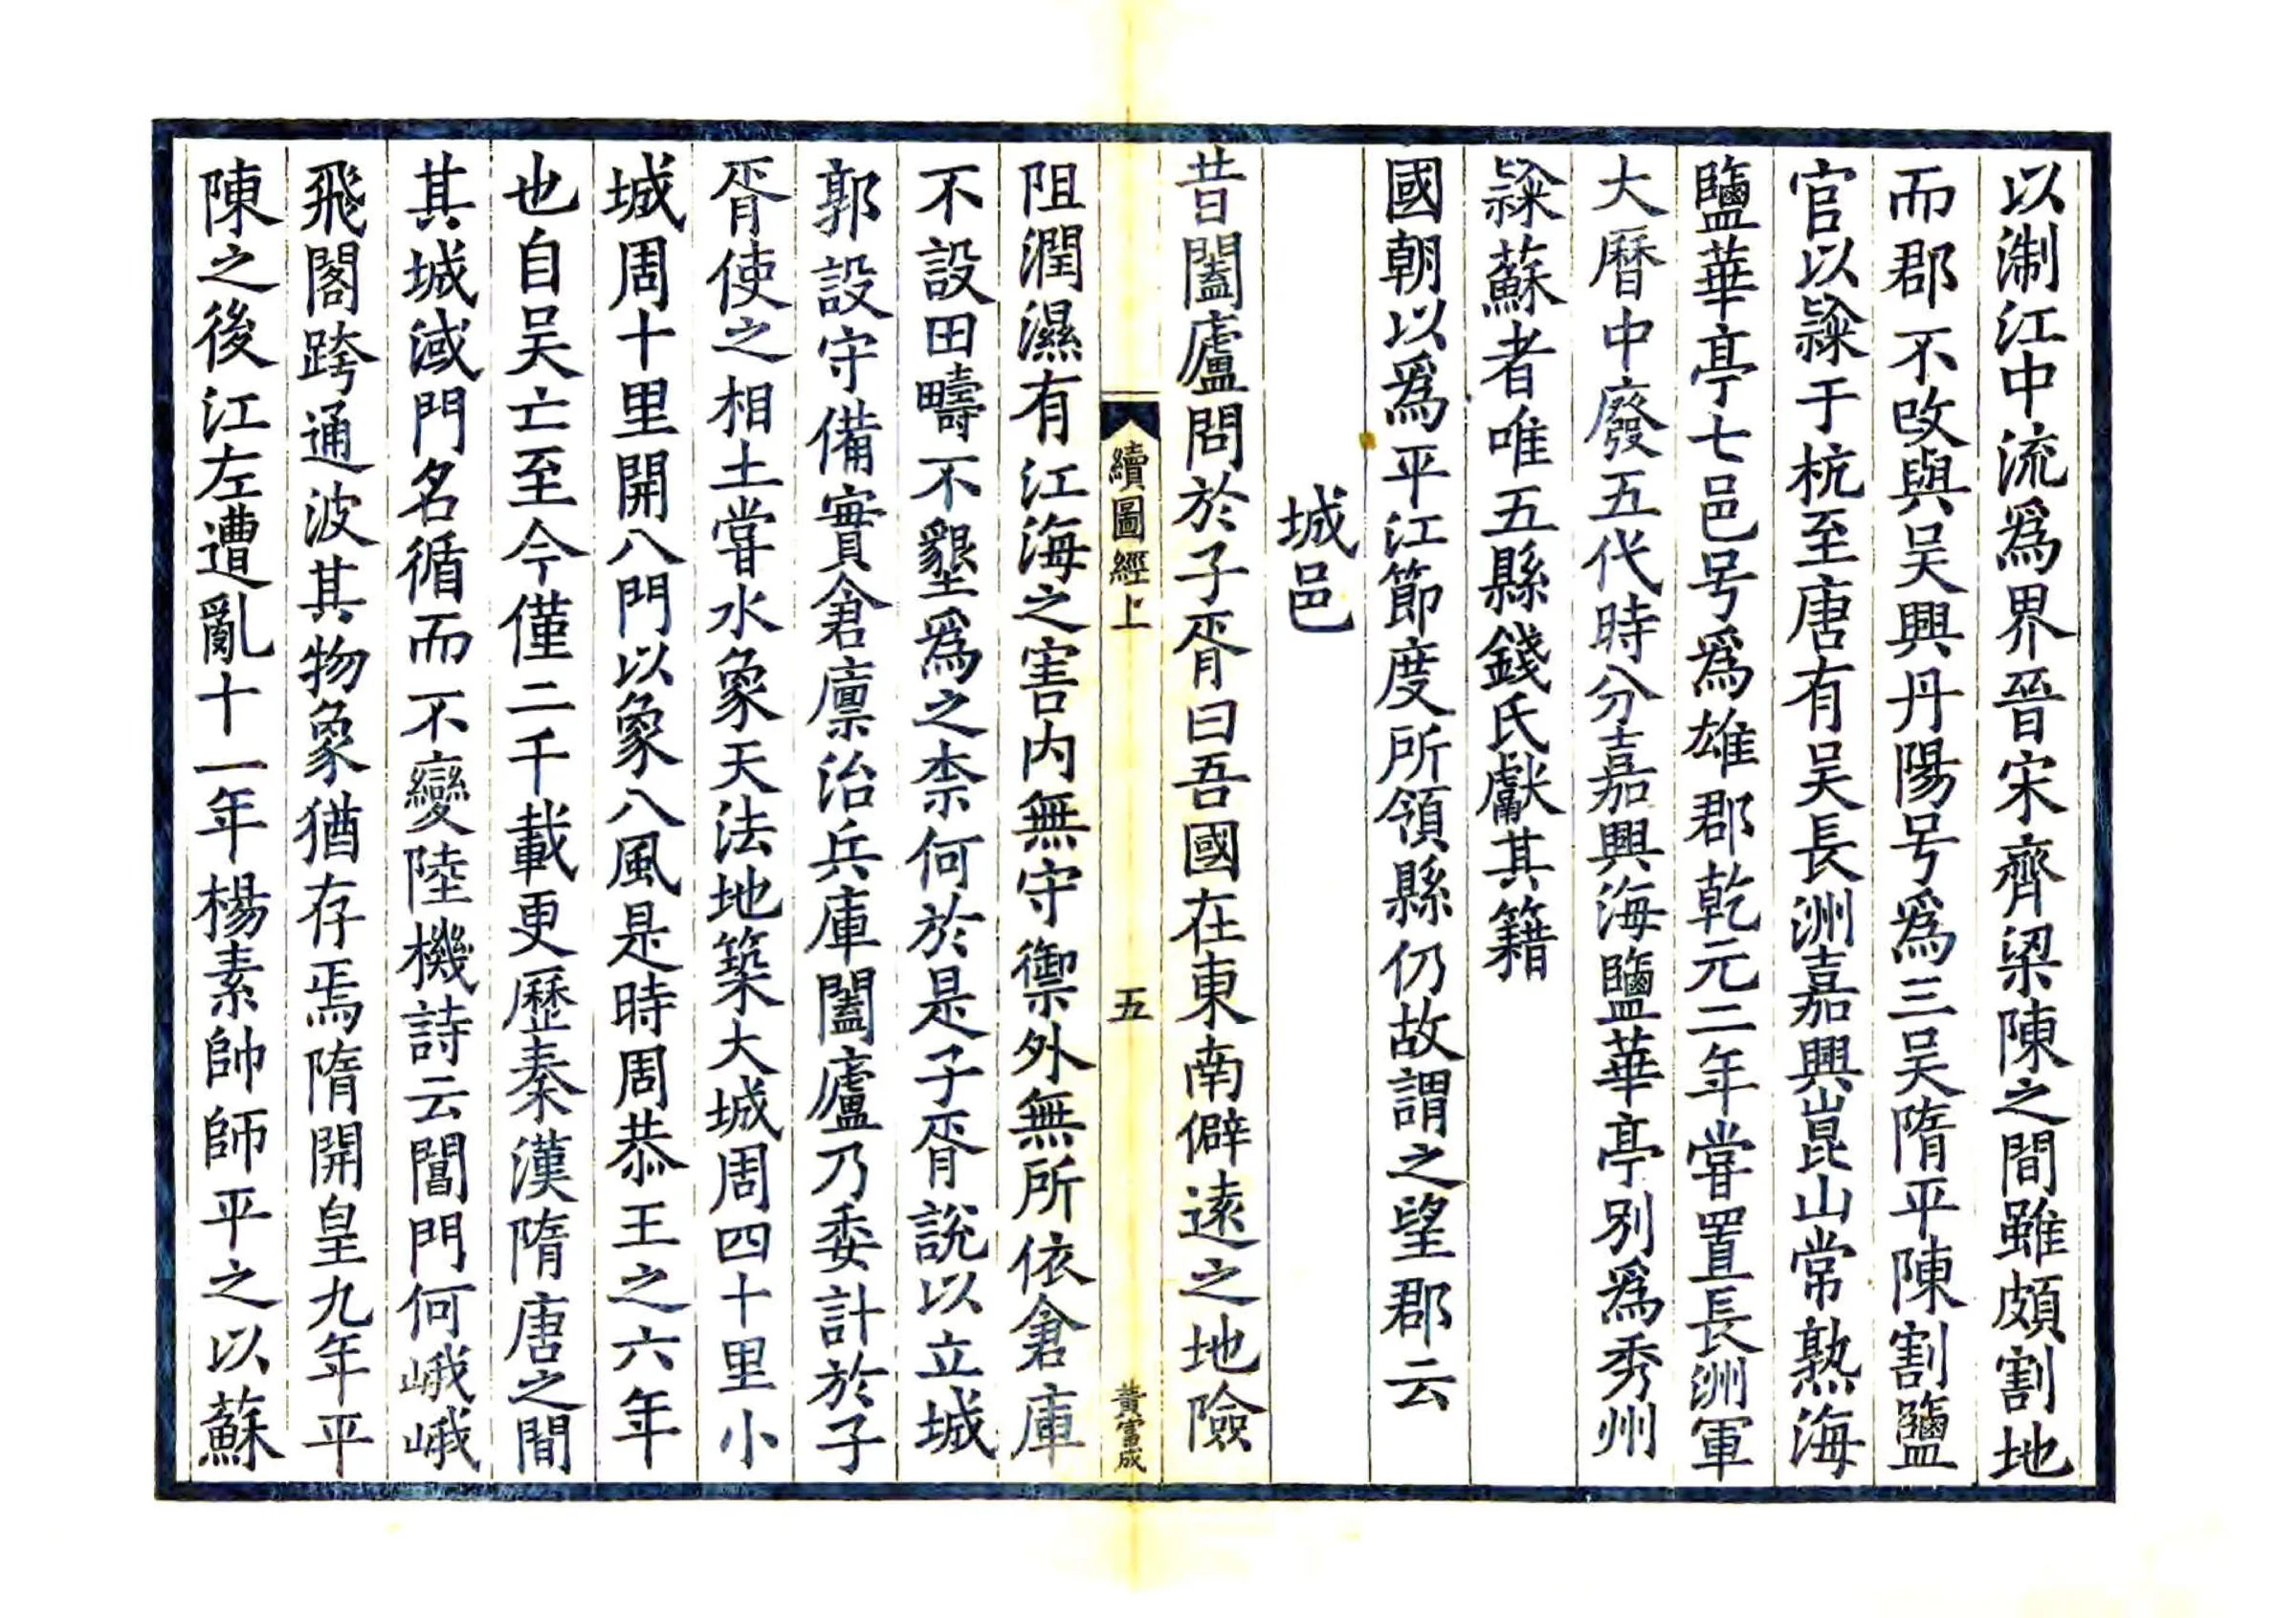 以淛江中流爲界晉宋齊梁陳之間雖頗割地
而郡不改與吴興丹陽号爲三吴隋平陳割鹽
官以𨽻于杭至唐有吴長洲嘉興崑山常熟海
鹽華亭七邑号爲雄郡乾元二年甞置長洲軍
大曆中廢五代時分嘉興海鹽華亭別爲秀州
𨽻蘇者唯五縣錢氏獻其籍
國朝以爲平江節度所領縣仍故謂之望郡云
城邑
昔闔廬問於子胥曰吾國在東南僻遠之地險
續圖經上
五
黃富成
阻潤濕有江海之害内無守禦外無所依倉庫
不設田疇不墾爲之柰何於是子胥說以立城
郭設守備實倉廪治兵庫闔廬乃委計於子
胥使之相土甞水象天法地築大城周四十里小
城周十里開八門以象八風是時周恭王之六年
也自吴亡至今僅二千載更歷秦漢隋唐之間
其城淢門名循而不變陸機詩云閶門何峨峨
飛閣跨通波其物象猶存焉隋開皇九年平
陳之後江左遭亂十一年楊素帥師平之以蘇